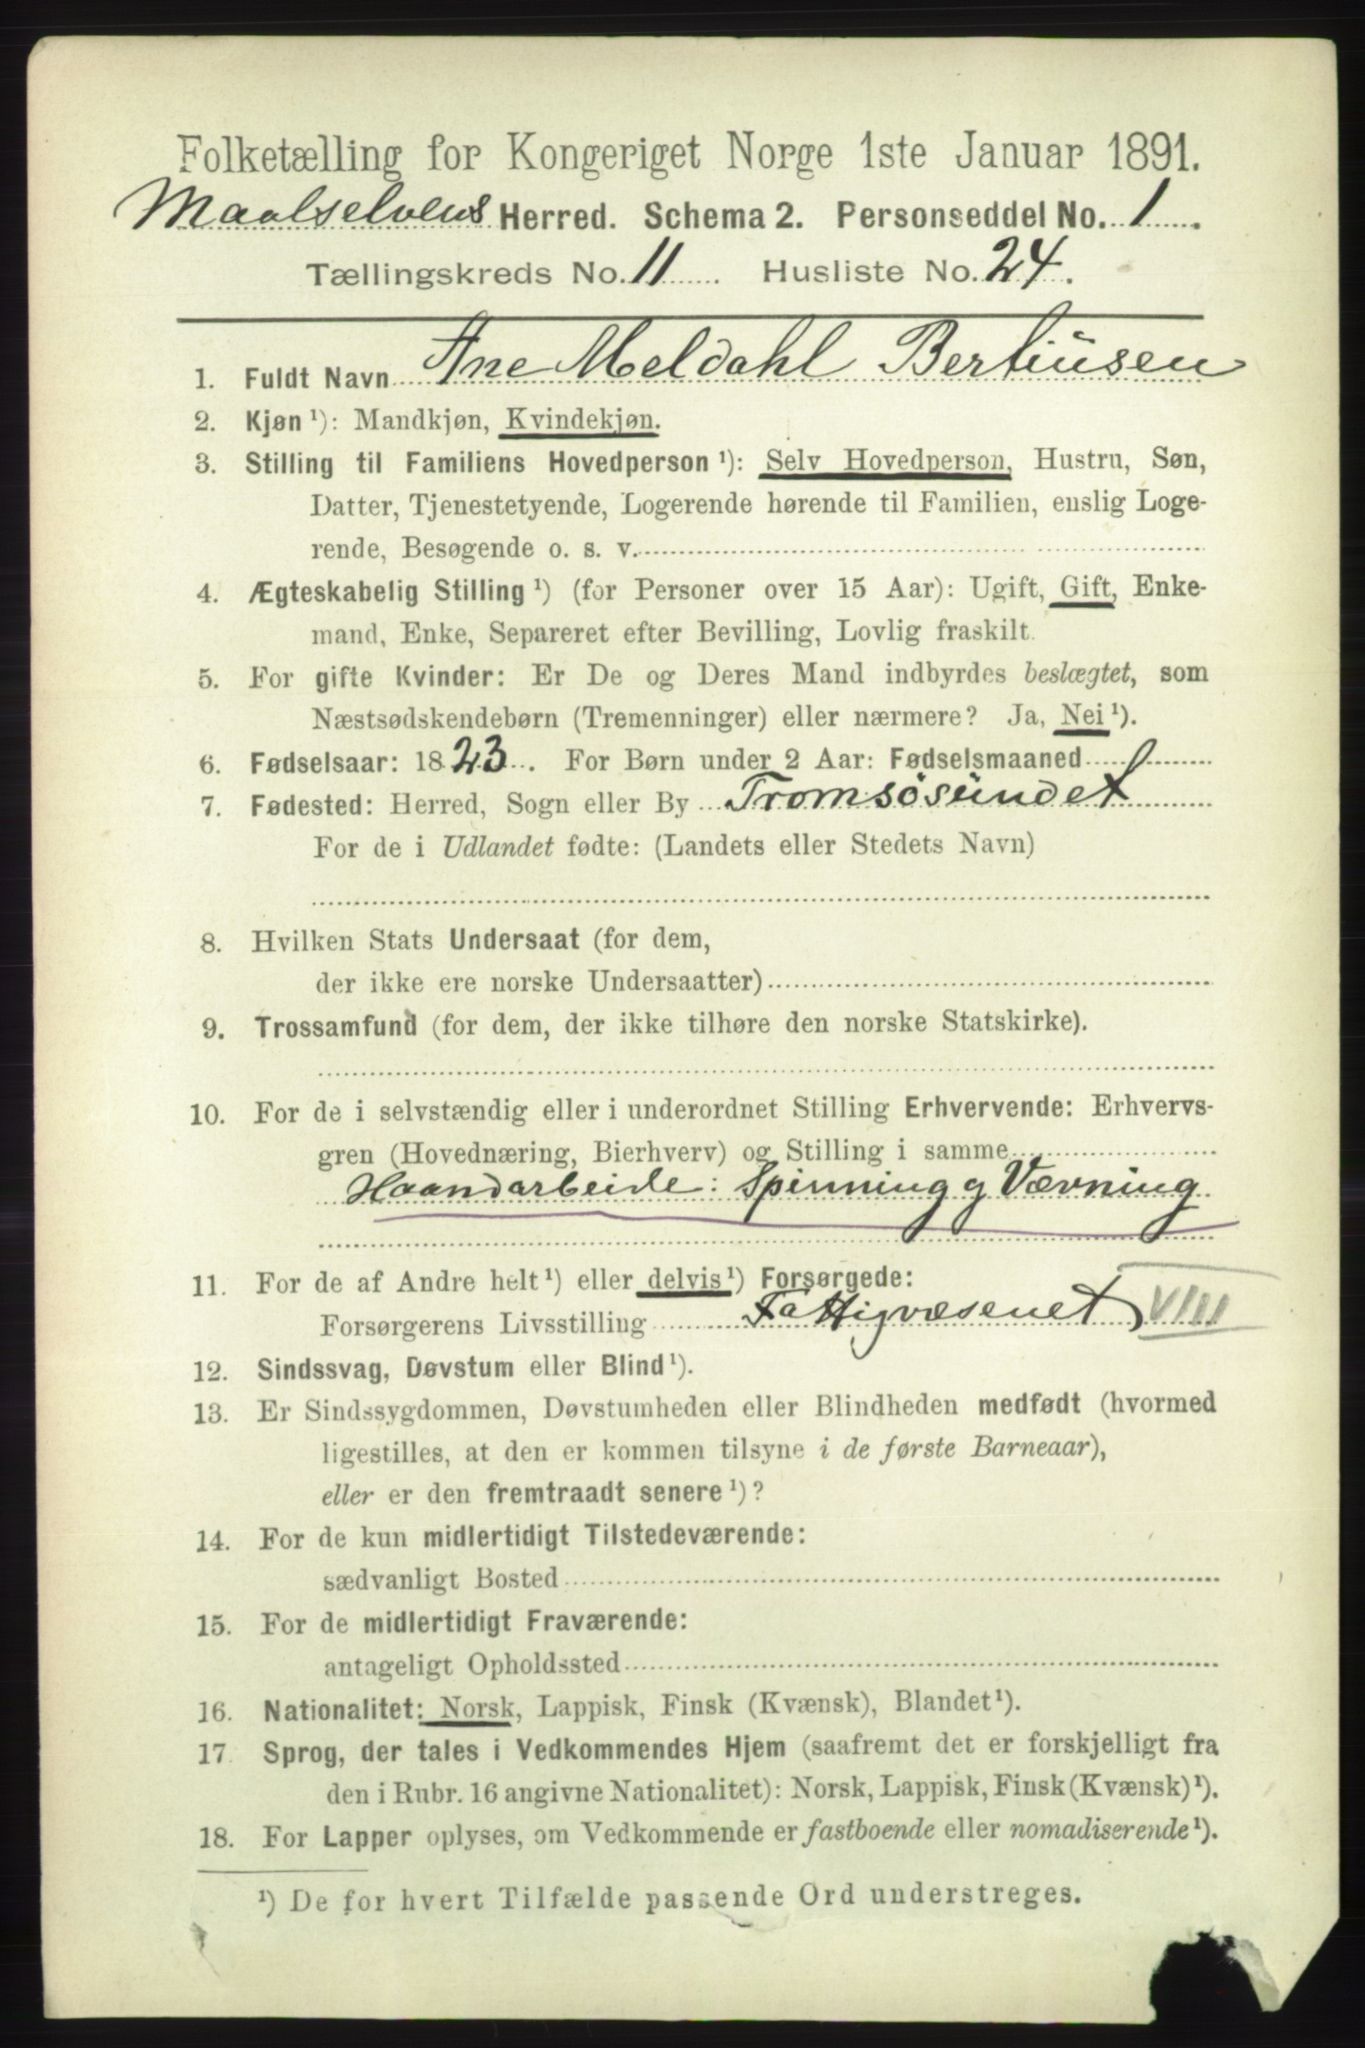 Folketælling for Kongeriget Norge 1ste Januar 1891.
Maalselvens Herred. Schema 2. Personseddel No. 1
Tællingskreds No. 11 Husliste No. 24.
1. Fuldt Navn Ane Meldahl Bertiusen
2. Kjøn ¹): Mandkjøn, Kvindekjøn.
3. Stilling til Familiens Hovedperson ¹): Selv Hovedperson, Hustru, Søn,
Datter, Tjenestetyende, Logerende hørende til Familien, enslig Loge-
rende, Besøgende o. s. v.
4. Ægteskabelig Stilling ¹) (for Personer over 15 Aar): Ugift, Gift, Enke-
mand, Enke, Separeret efter Bevilling, Lovlig fraskilt.
5. For gifte Kvinder: Er De og Deres Mand indbyrdes beslægtet, som
Næstsødskendebørn (Tremenninger) eller nærmere? Ja, Nei ¹).
6. Fødselsaar: 1823. For Børn under 2 Aar: Fødselsmaaned
7. Fødested: Herred, Sogn eller By Tromsøsundet
For de i Udlandet fødte: (Landets eller Stedets Navn)
8. Hvilken Stats Undersaat (for dem,
der ikke ere norske Undersaatter)
9. Trossamfund (for dem, der ikke tilhøre den norske Statskirke).
10. For de i selvstændig eller i underordnet Stilling Erhvervende: Erhvervs-
gren (Hovednæring, Bierhverv) og Stilling i samme
Haandarbeide: Spinning og Vævning
11. For de af Andre helt ¹) eller delvis ¹) Forsørgede:
Forsørgerens Livsstilling Fattigvæsenet VIII
12. Sindssvag, Døvstum eller Blind ¹).
13. Er Sindssygdommen, Døvstumheden eller Blindheden medfødt (hvormed
ligestilles, at den er kommen tilsyne i de første Barneaar),
eller er den fremtraadt senere ¹)?
14. For de kun midlertidigt Tilstedeværende:
sædvanligt Bosted
15. For de midlertidigt Fraværende:
antageligt Opholdssted
16. Nationalitet: Norsk, Lappisk, Finsk (Kvænsk), Blandet ¹).
17 Sprog, der tales i Vedkommendes Hjem (saafremt det er forskjelligt fra
den i Rubr. 16 angivne Nationalitet): Norsk, Lappisk, Finsk (Kvænsk) ¹).
18. For Lapper oplyses, om Vedkommende er fastboende eller nomadiserende ¹).
¹) De for hvert Tilfælde passende Ord understreges.